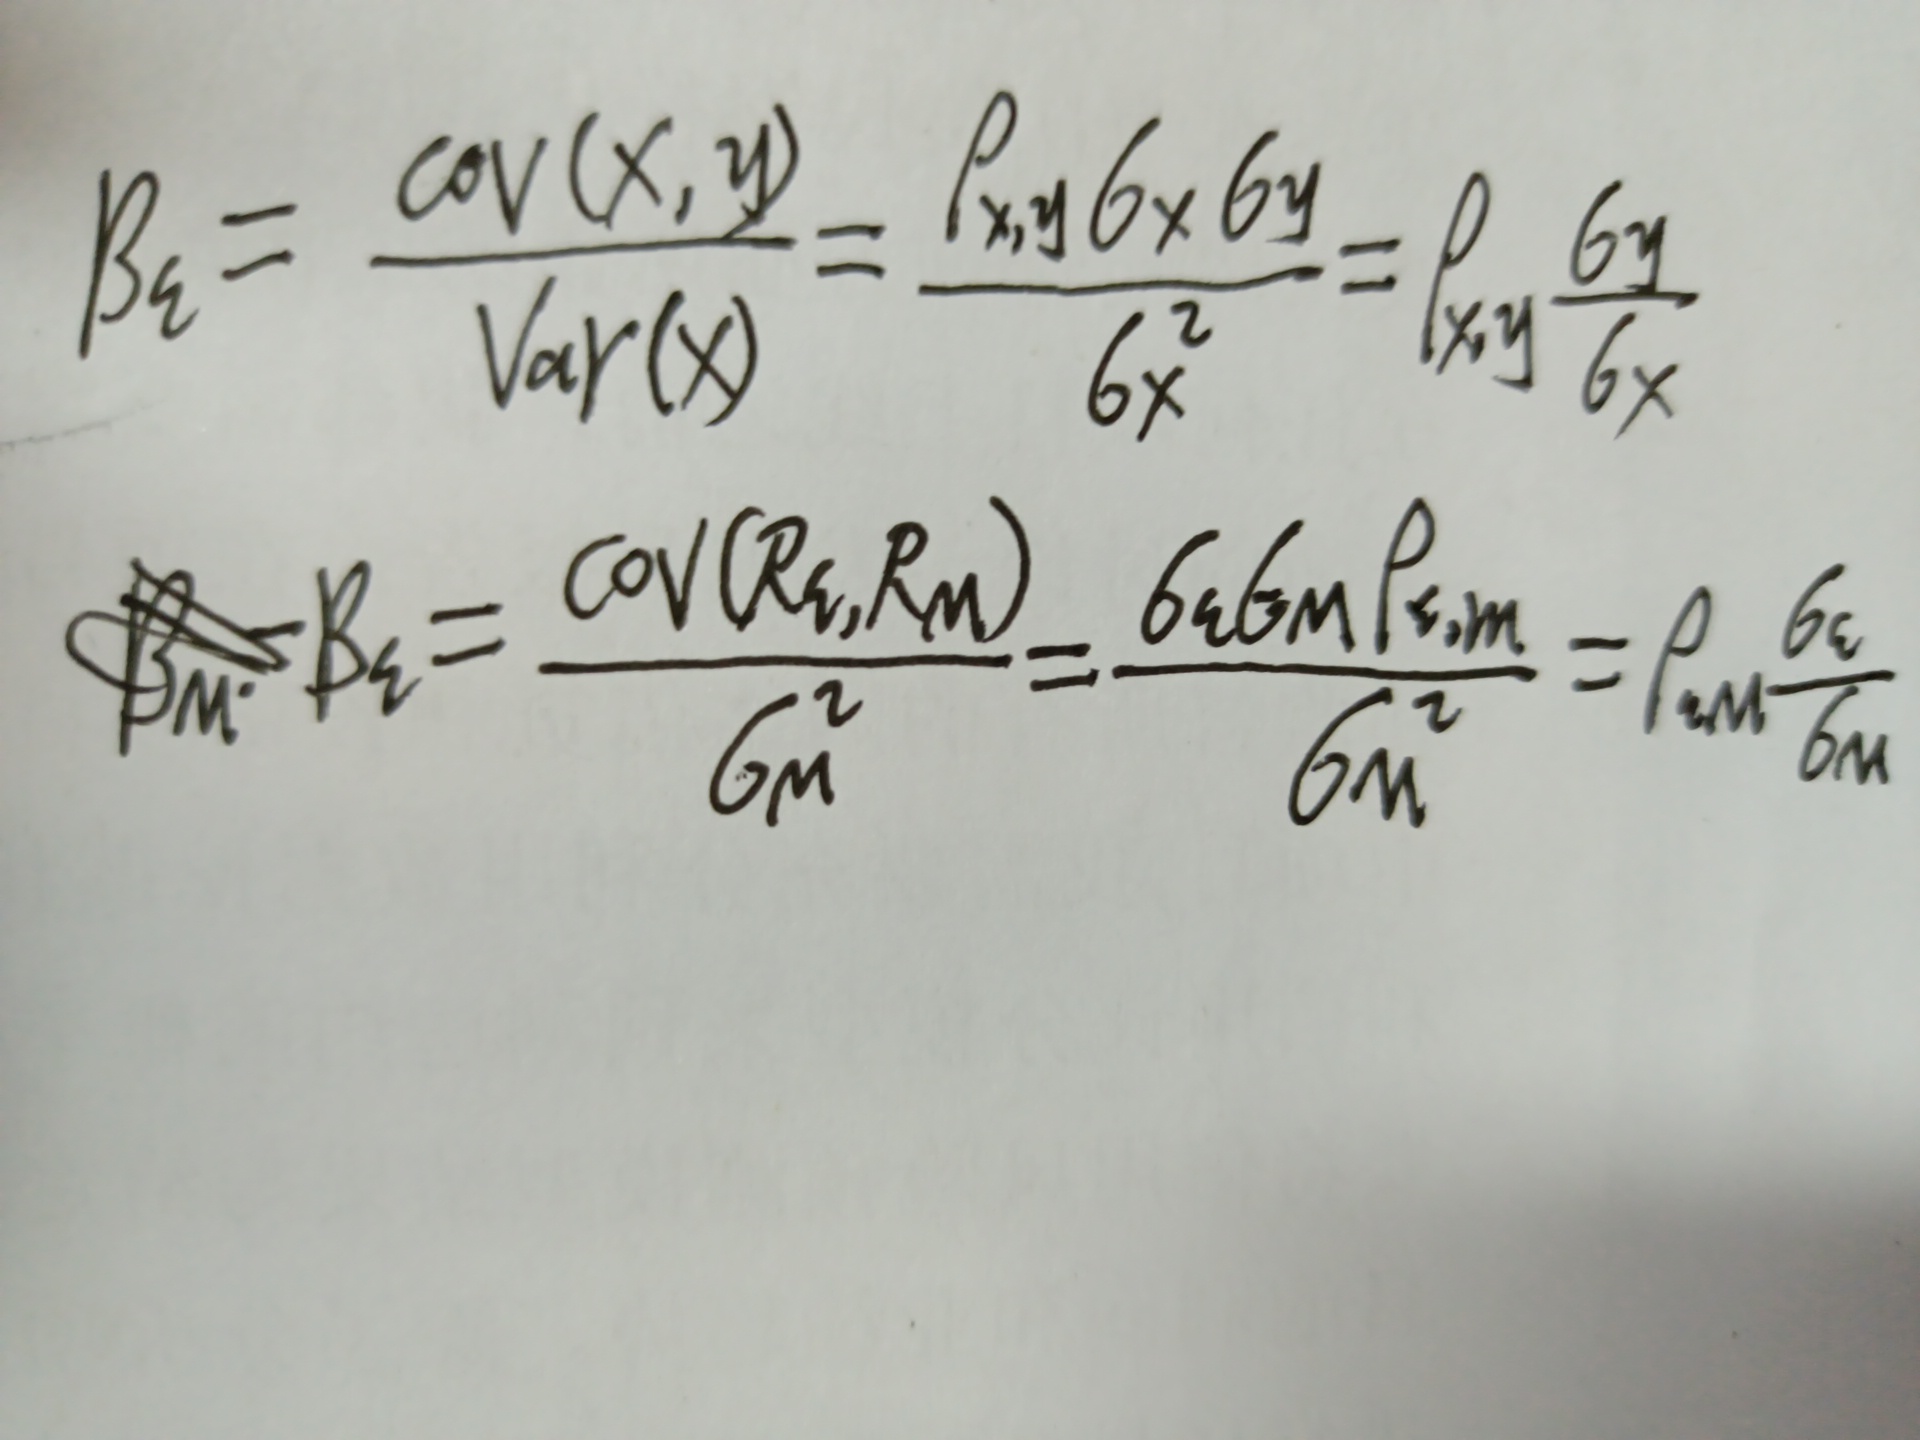 β_ε = cov(x,y) / Var(x) = ρ_x,y σ_x σ_y / σ_x² = ρ_x,y σ_y / σ_x
β_ε = cov(R_ε,R_M) / σ_M² = σ_ε σ_M ρ_ε,m / σ_M² = ρ_ε,M σ_ε / σ_M